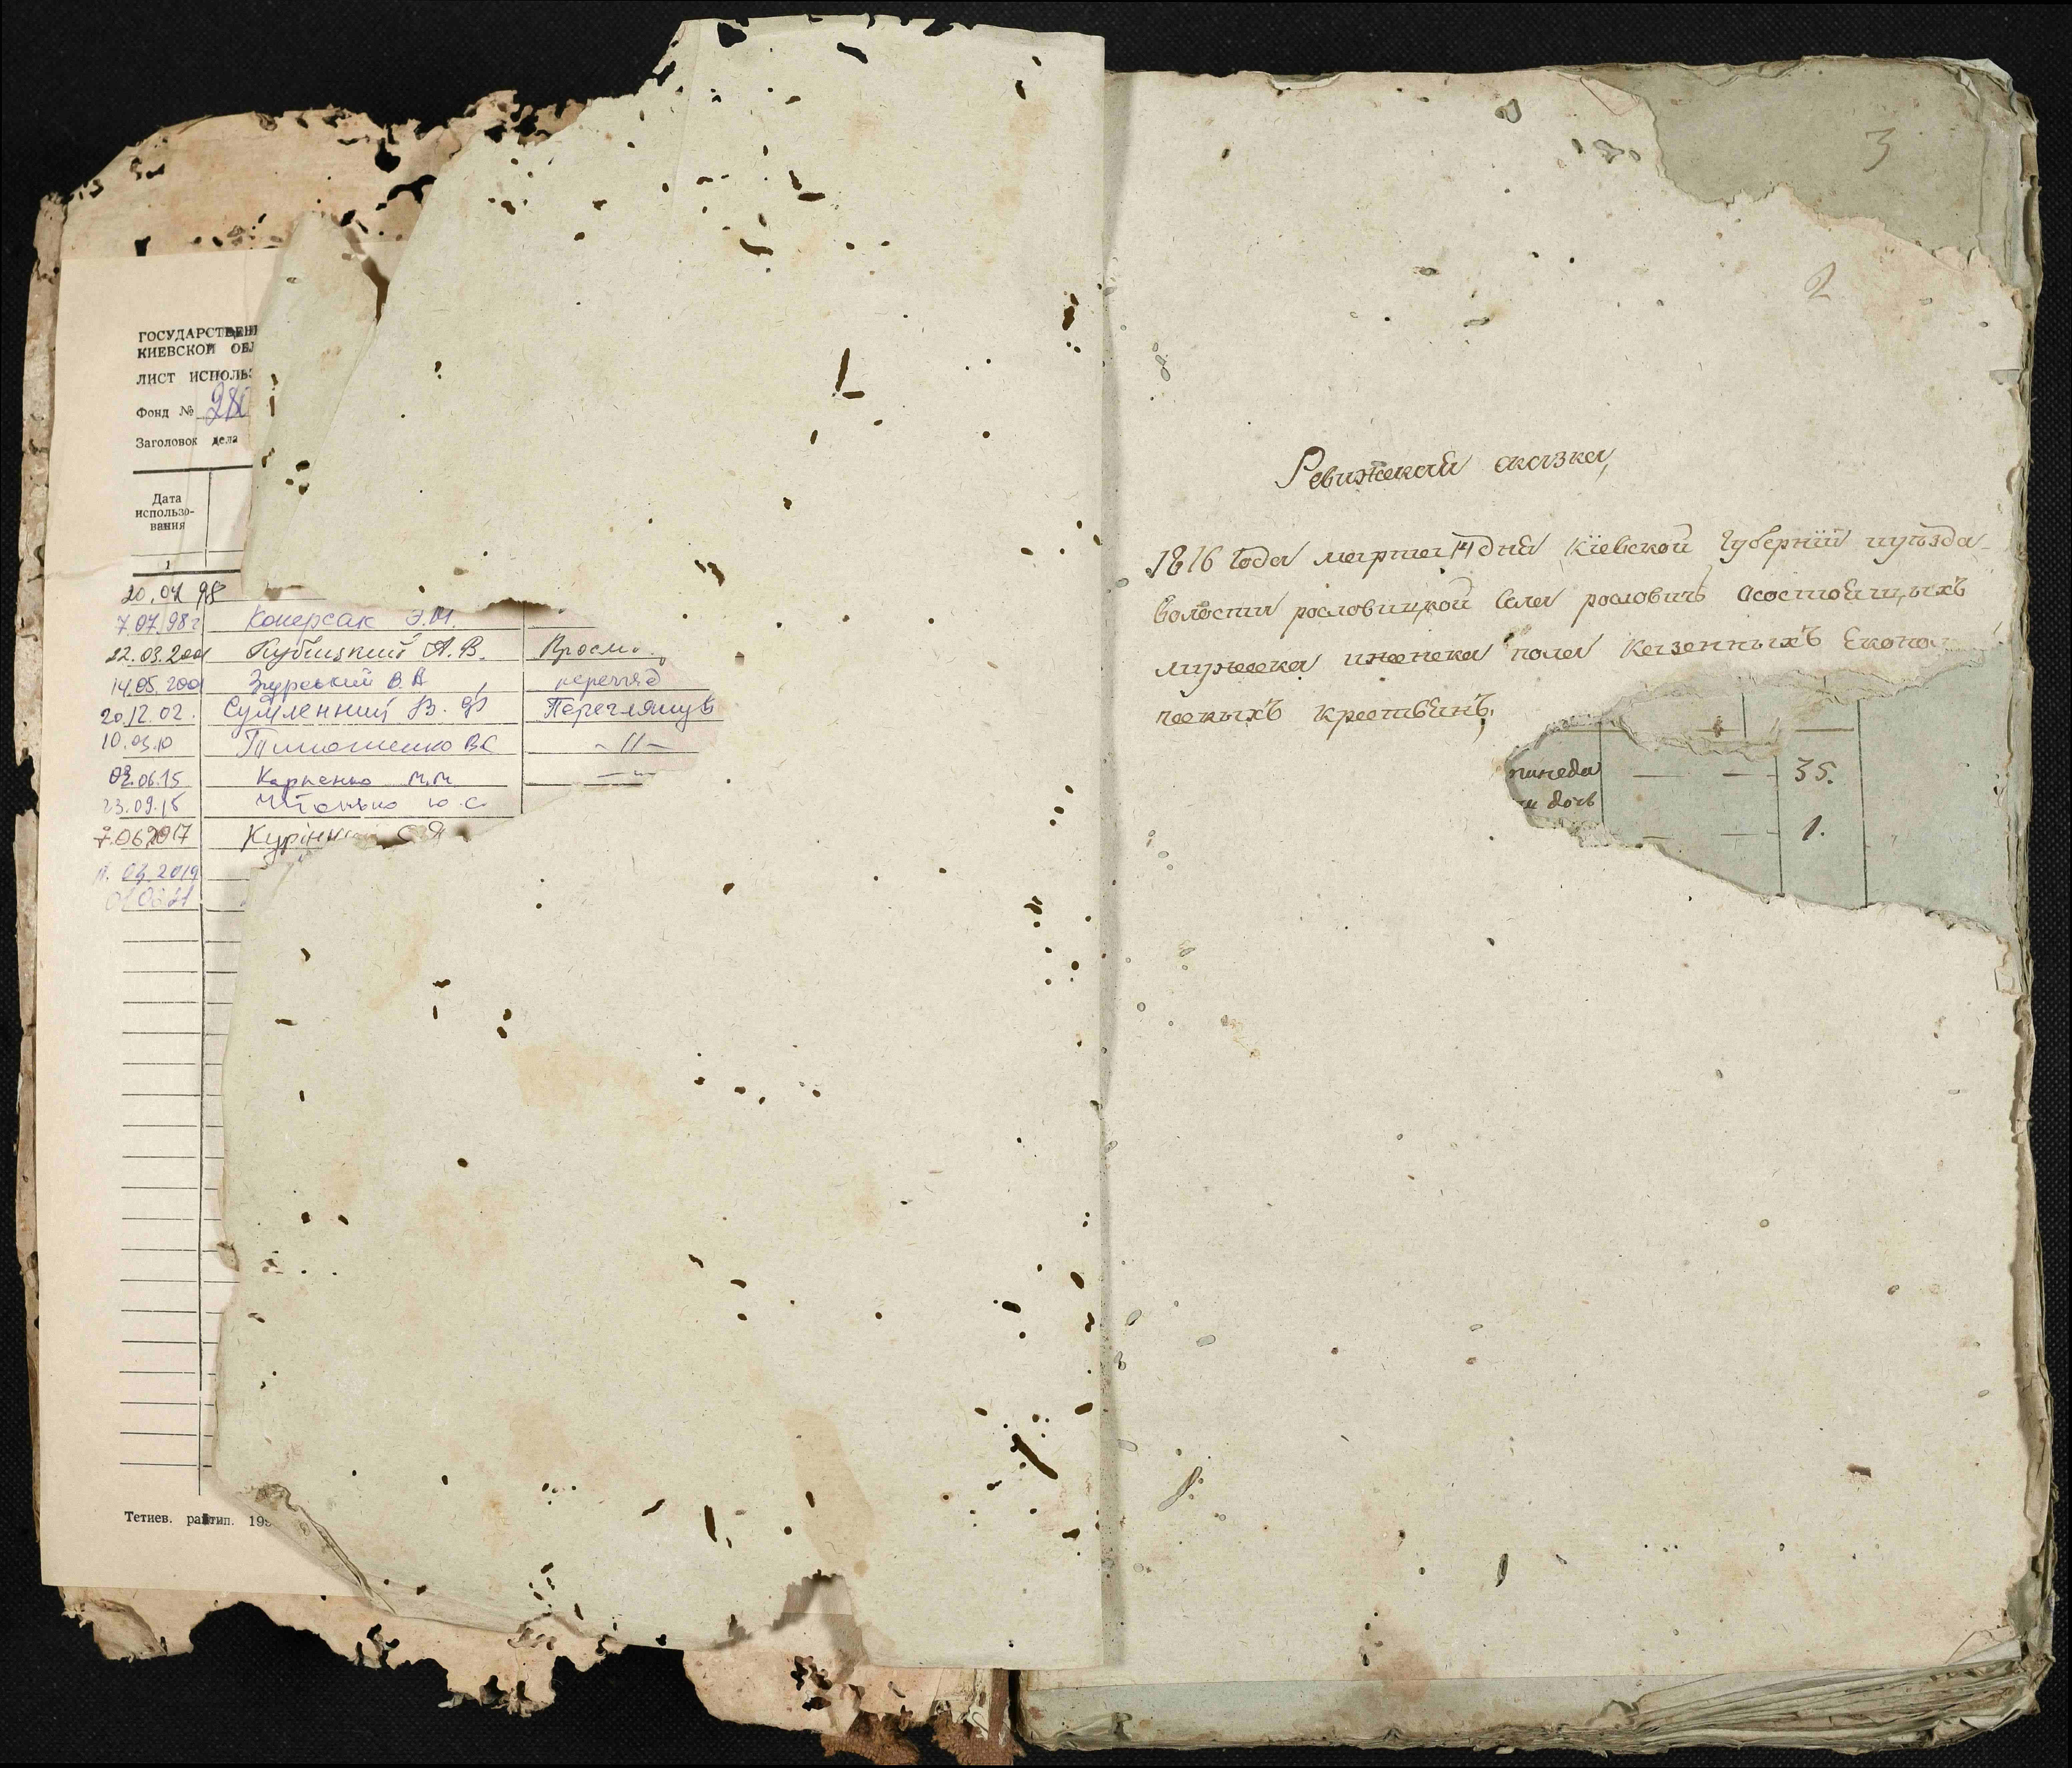 ГОСУДАРСТВЕНН
КИЕВСКОЙ ОБЛ
ЛИСТ ИСПОЛЬЗ
Фонд № 280
Заголовок дела
Дата
использо-
вания
1
20.04 98
7.07.98г Конерсак Э.М.
22.03.2001 Кубицкий А.В. Просм
14.05.2001 Згурський В.А перегляд
20.12.02. Сумленний В.Ф Переглянув
10.03.10 Тимошенко В.С. -"-
02.06.15 Карпенко М.М. -"-
23.09.15 Ю.С.
7.06.2017 Курінн С Я
11.04.2019
Тетиев. райтип. 199
3
2
Ревижская сказка,
1816 года марта 14 дня Кіевской Губерніи иуезда
волости рословицкой села рословичъ Осостоящихъ
мужеска иженска пола Казенныхъ Еконо
ческихъ крестьянъ,
35.
и дочь
1.